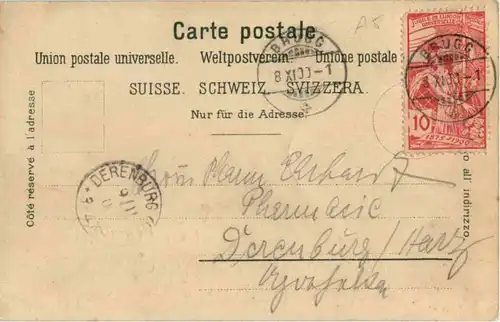 A8
Carte postale.
Union postale universelle. Weltpostverein. Unione postale
SUISSE. SCHWEIZ. SVIZZERA.
Nur für die Adresse.
Côté réservé à l'adresse
o all' indirizzo.
BRUGG
8 XI 00-1
BRUGG
XI 00-1
10
DERENBURG
9/11
Hermann
Pharmacie
Derenburg / Harz